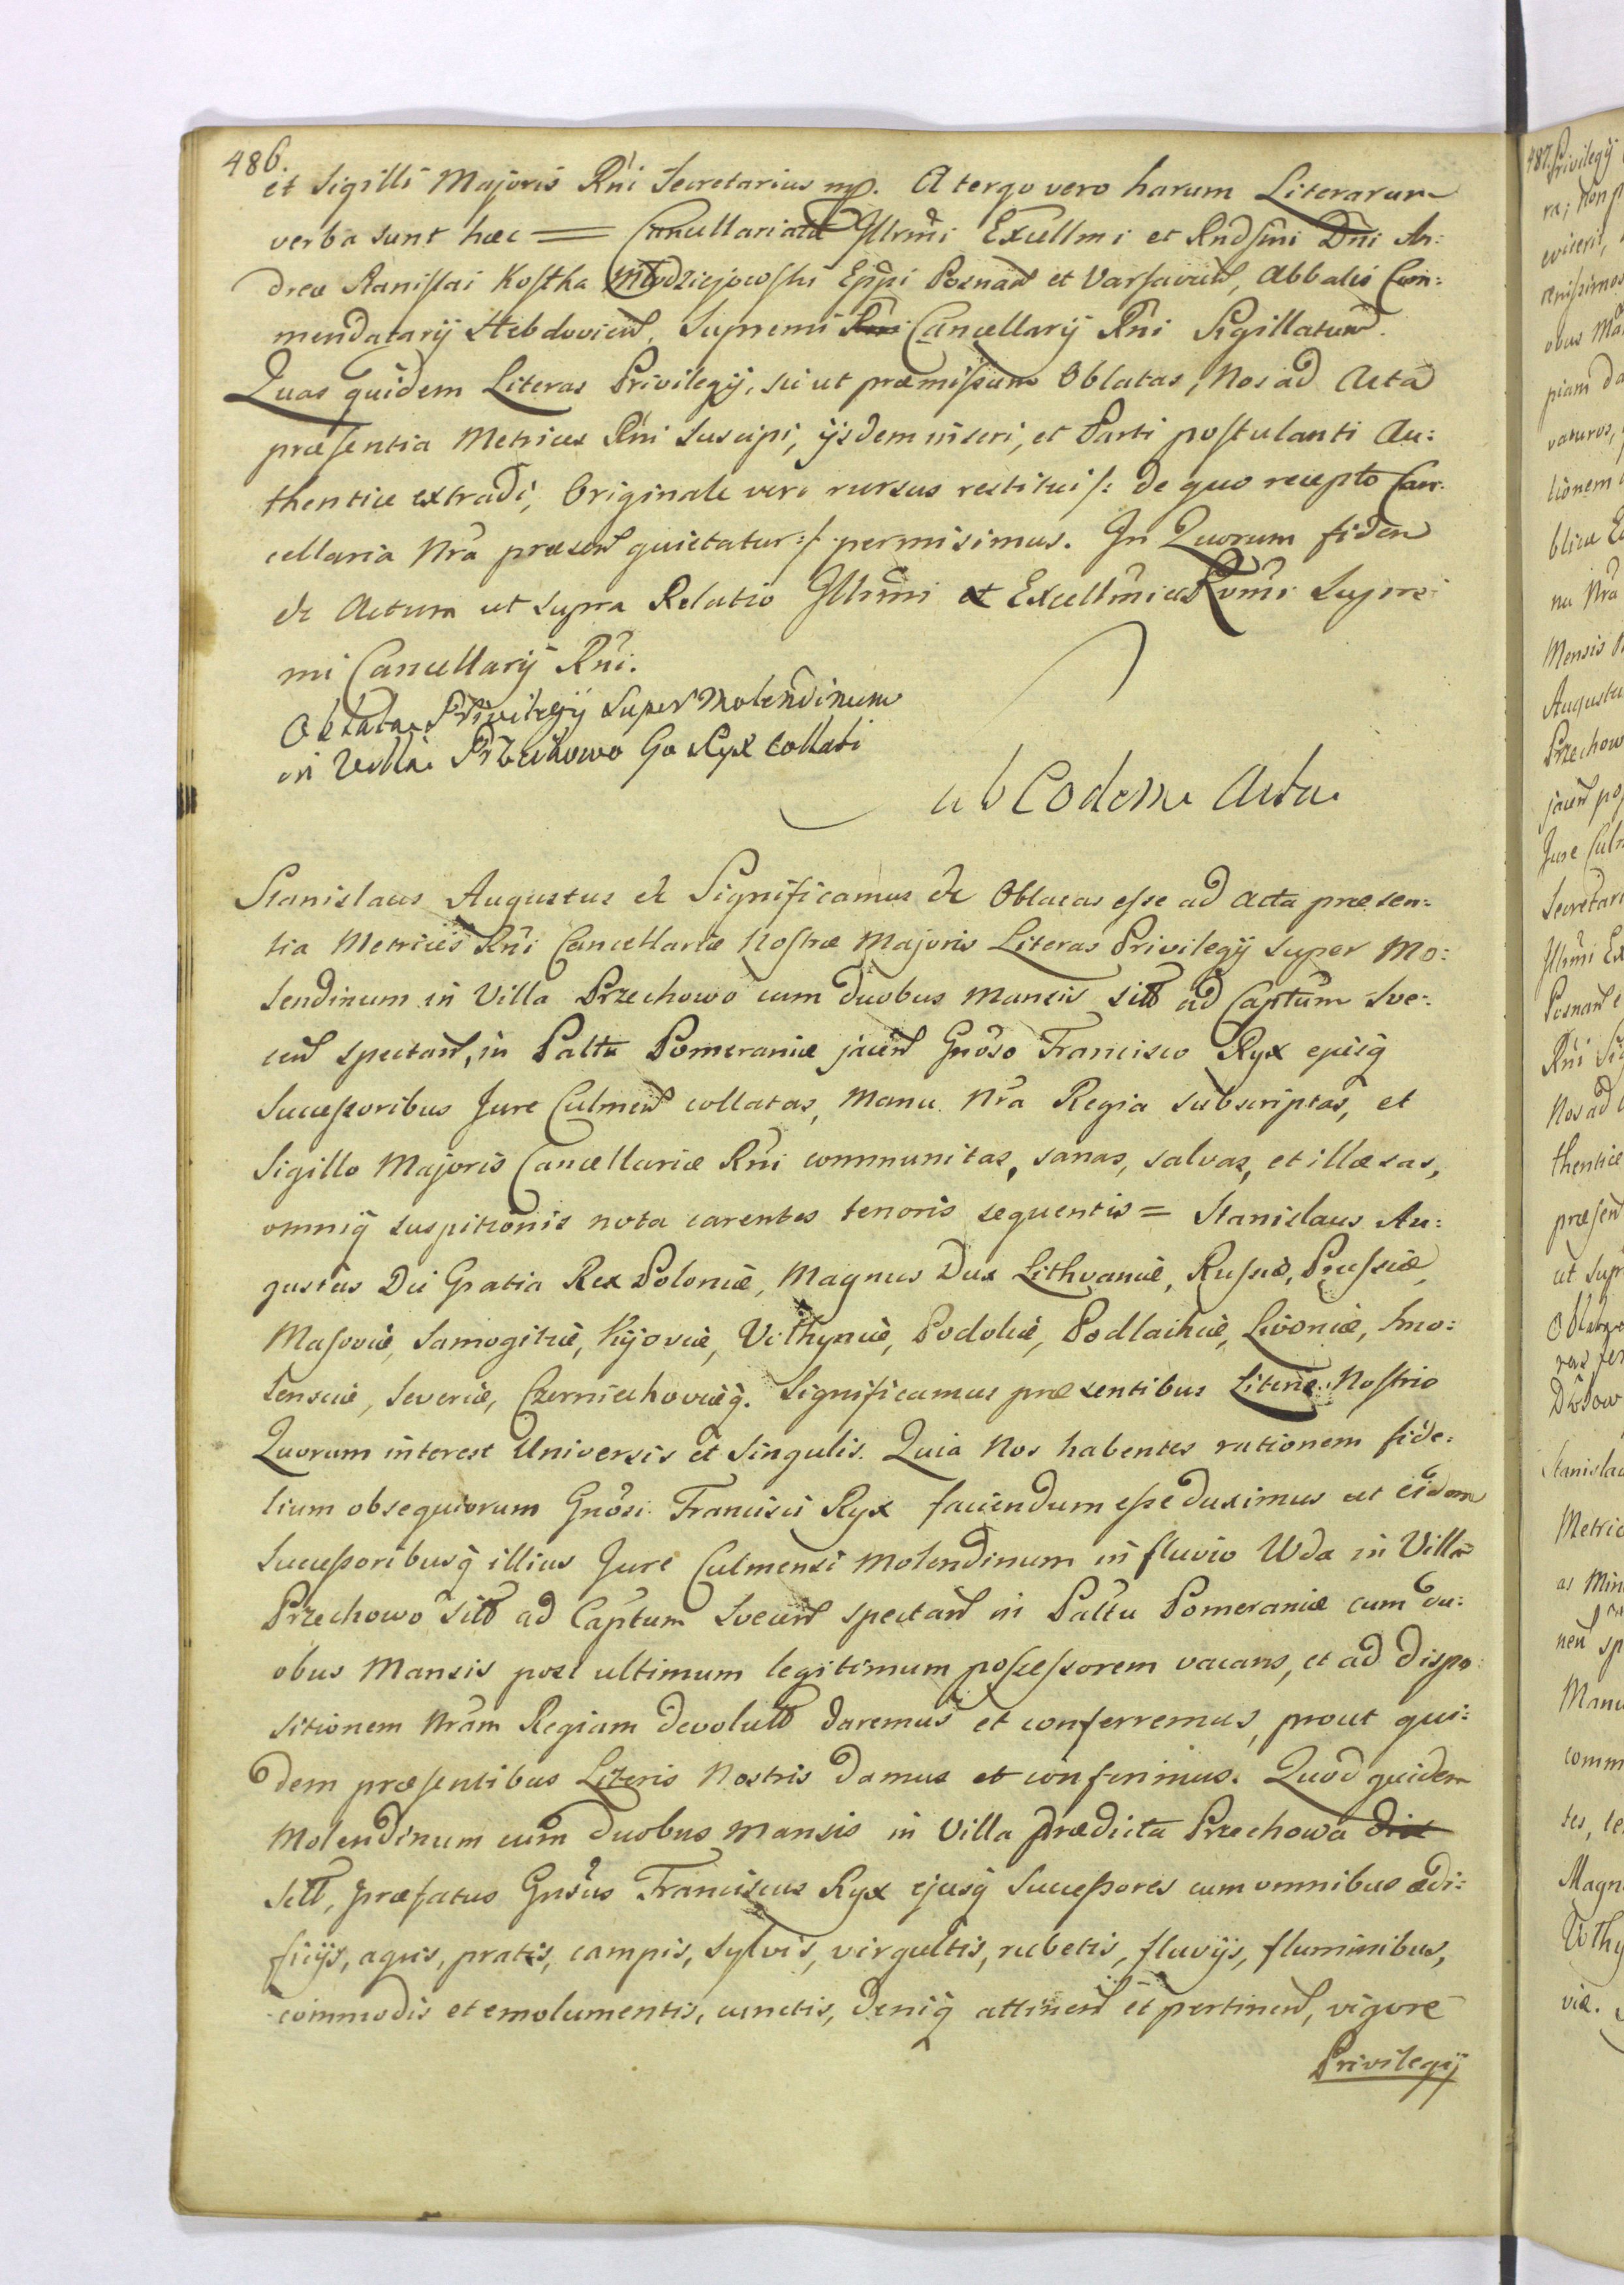 486.
et Sigilli Majoris Rńi Secretarius mp. A tergo vero harum Literarum
verba sunt hæc = Cancellariatu Jllrmi Excellmi et Rndſmi Dni An:
dreæ Stanislai Koſtka Młodziejowſki Eppi Posnan et Varſavien, Abbatis Com:
mendatarij Hebdovien, Supremi Cancellarij Rńi Sigillatum.
Quas quidem Literas Privilegij, sic ut præmiſsum Oblatas, Nos ad Acta
præſentia Metrices Rńi suscipi, ijsdem inseri, et Parti poſtulanti Au:
thentice extradi, Originale vero rursus restitui /: de quo recepto Can:
cellaria Nrã præsen quietatur :/ permisimus. In Quorum fidem
&c Actum ut supra Relatio Jllrmi et Excellmi Supre:
mi Cancellarij Rńi.
Oblata Privilegij super Molendinum
in Villa Przechowo Go Ryx collati
ab Eodem Acta
Stanislaus Augustus &c Significamus &c Oblatas eſse ad Acta præsen:
tia Metrices Rńi Cancellariæ Noſtræ Majoris Literas Privilegij super Mo:
lendinum in Villa Przechowo cum duobus mansis sitt ad Captum Sve:
cen spectan, in Palttu Pomeraniæ jacen Gnoso Francisco Ryx ejusq
Succeſsoribus Jure Culmen collatas, Manu Nrã Regia subscriptas, et
Sigillo Majoris Cancellariæ Rńi communitas, sanas, salvas, et illæsas,
omniq suspitionis nota carentes tenoris sequentis = Stanislaus Au:
gustus Dei Gratia Rex Poloniæ, Magnus Dux Lithvaniæ, Ruſsiæ, Pruſsiæ,
Maſoviæ, Samogitiæ, Kijoviæ, Volhyniæ, Podoliæ, Podlachiæ, Livoniæ, Smo:
lensciæ, Severiæ, Czerniechoviæq. Significamus præsentibus Literis Noſtris
Quorum interest Universis et Singulis. Quia Nos habentes rationem fide:
lium obsequiorum Gnosi Francisci Ryx faciendum eſse duximus ut eidem
Succeſsoribusq illius Jure Culmensi Molendinum in fluvio Wda in Villa
Przechowo sitt ad Captum Svecen spectan in Palttu Pomeraniæ cum du:
obus Mansis post ultimum legitimum poſseſsorem vacans, et ad dispo:
sitionem Nrãm Regiam devolutt daremus et conferremus, prout qui:
dem præſentibus Literis Nostris damus et conferimus. Quod quidem
Molendinum cum duobus mansis in Villa prædicta Przechowa dict
sitt, præfatus Gnosus Franciscus Ryx ejusq Succeſsores cum omnibus ædi:
ficijs, agris, pratis, campis, sylvis, virgultis, rubetis, fluvijs, fluminibus,
commodis et emolumentis, cunctis, deniq attinen et pertinen, vigore
Privilegij